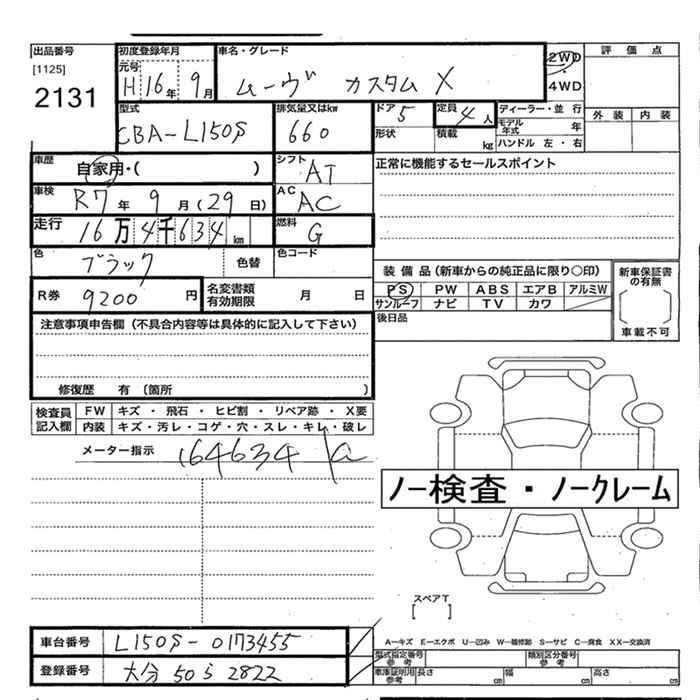 出品番号
[1125]
2131
初度登録年月
元号
H16年 9月
車名・グレード
ムーヴ カスタム X
2WD
・
4WD
評価点
外装 内装
型式
CBA-L150S
排気量又はkw
660
ドア 5
形状
定員 4人
積載 kg
ディーラー・並行
モデル年式 年
ハンドル 左・右
車歴
自家用・( )
シフト
AT
正常に機能するセールスポイント
車検
R7年 9月(29日)
AC
AC
走行
16万4千634km
燃料
G
色
ブラック
色替
色コード
R券
9200円
名変書類
有効期限 月 日
装備品(新車からの純正品に限り○印)
PS PW ABS エアB アルミW
サンルーフ ナビ TV カワ
新車保証書
の有無
車載不可
後日品
注意事項申告欄(不具合内容等は具体的に記入して下さい)
修復歴 有 〔箇所 〕
検査員
記入欄
FW キズ・飛石・ヒビ割・リペア跡・X要
内装 キズ・汚レ・コゲ・穴・スレ・キレ・破レ
メーター指示
164634
ノー検査・ノークレーム
スペアT
[ ]
A-キズ E-エクボ U-凹み W-補修跡 S-サビ C-腐食 XX-交換済
車台番号
L150S-0173455
登録番号
大分 50 ら 2822
型式指定番号
参考
類別区分番号
参考
車庫証明用
参考
長さ cm
幅 cm
高さ cm